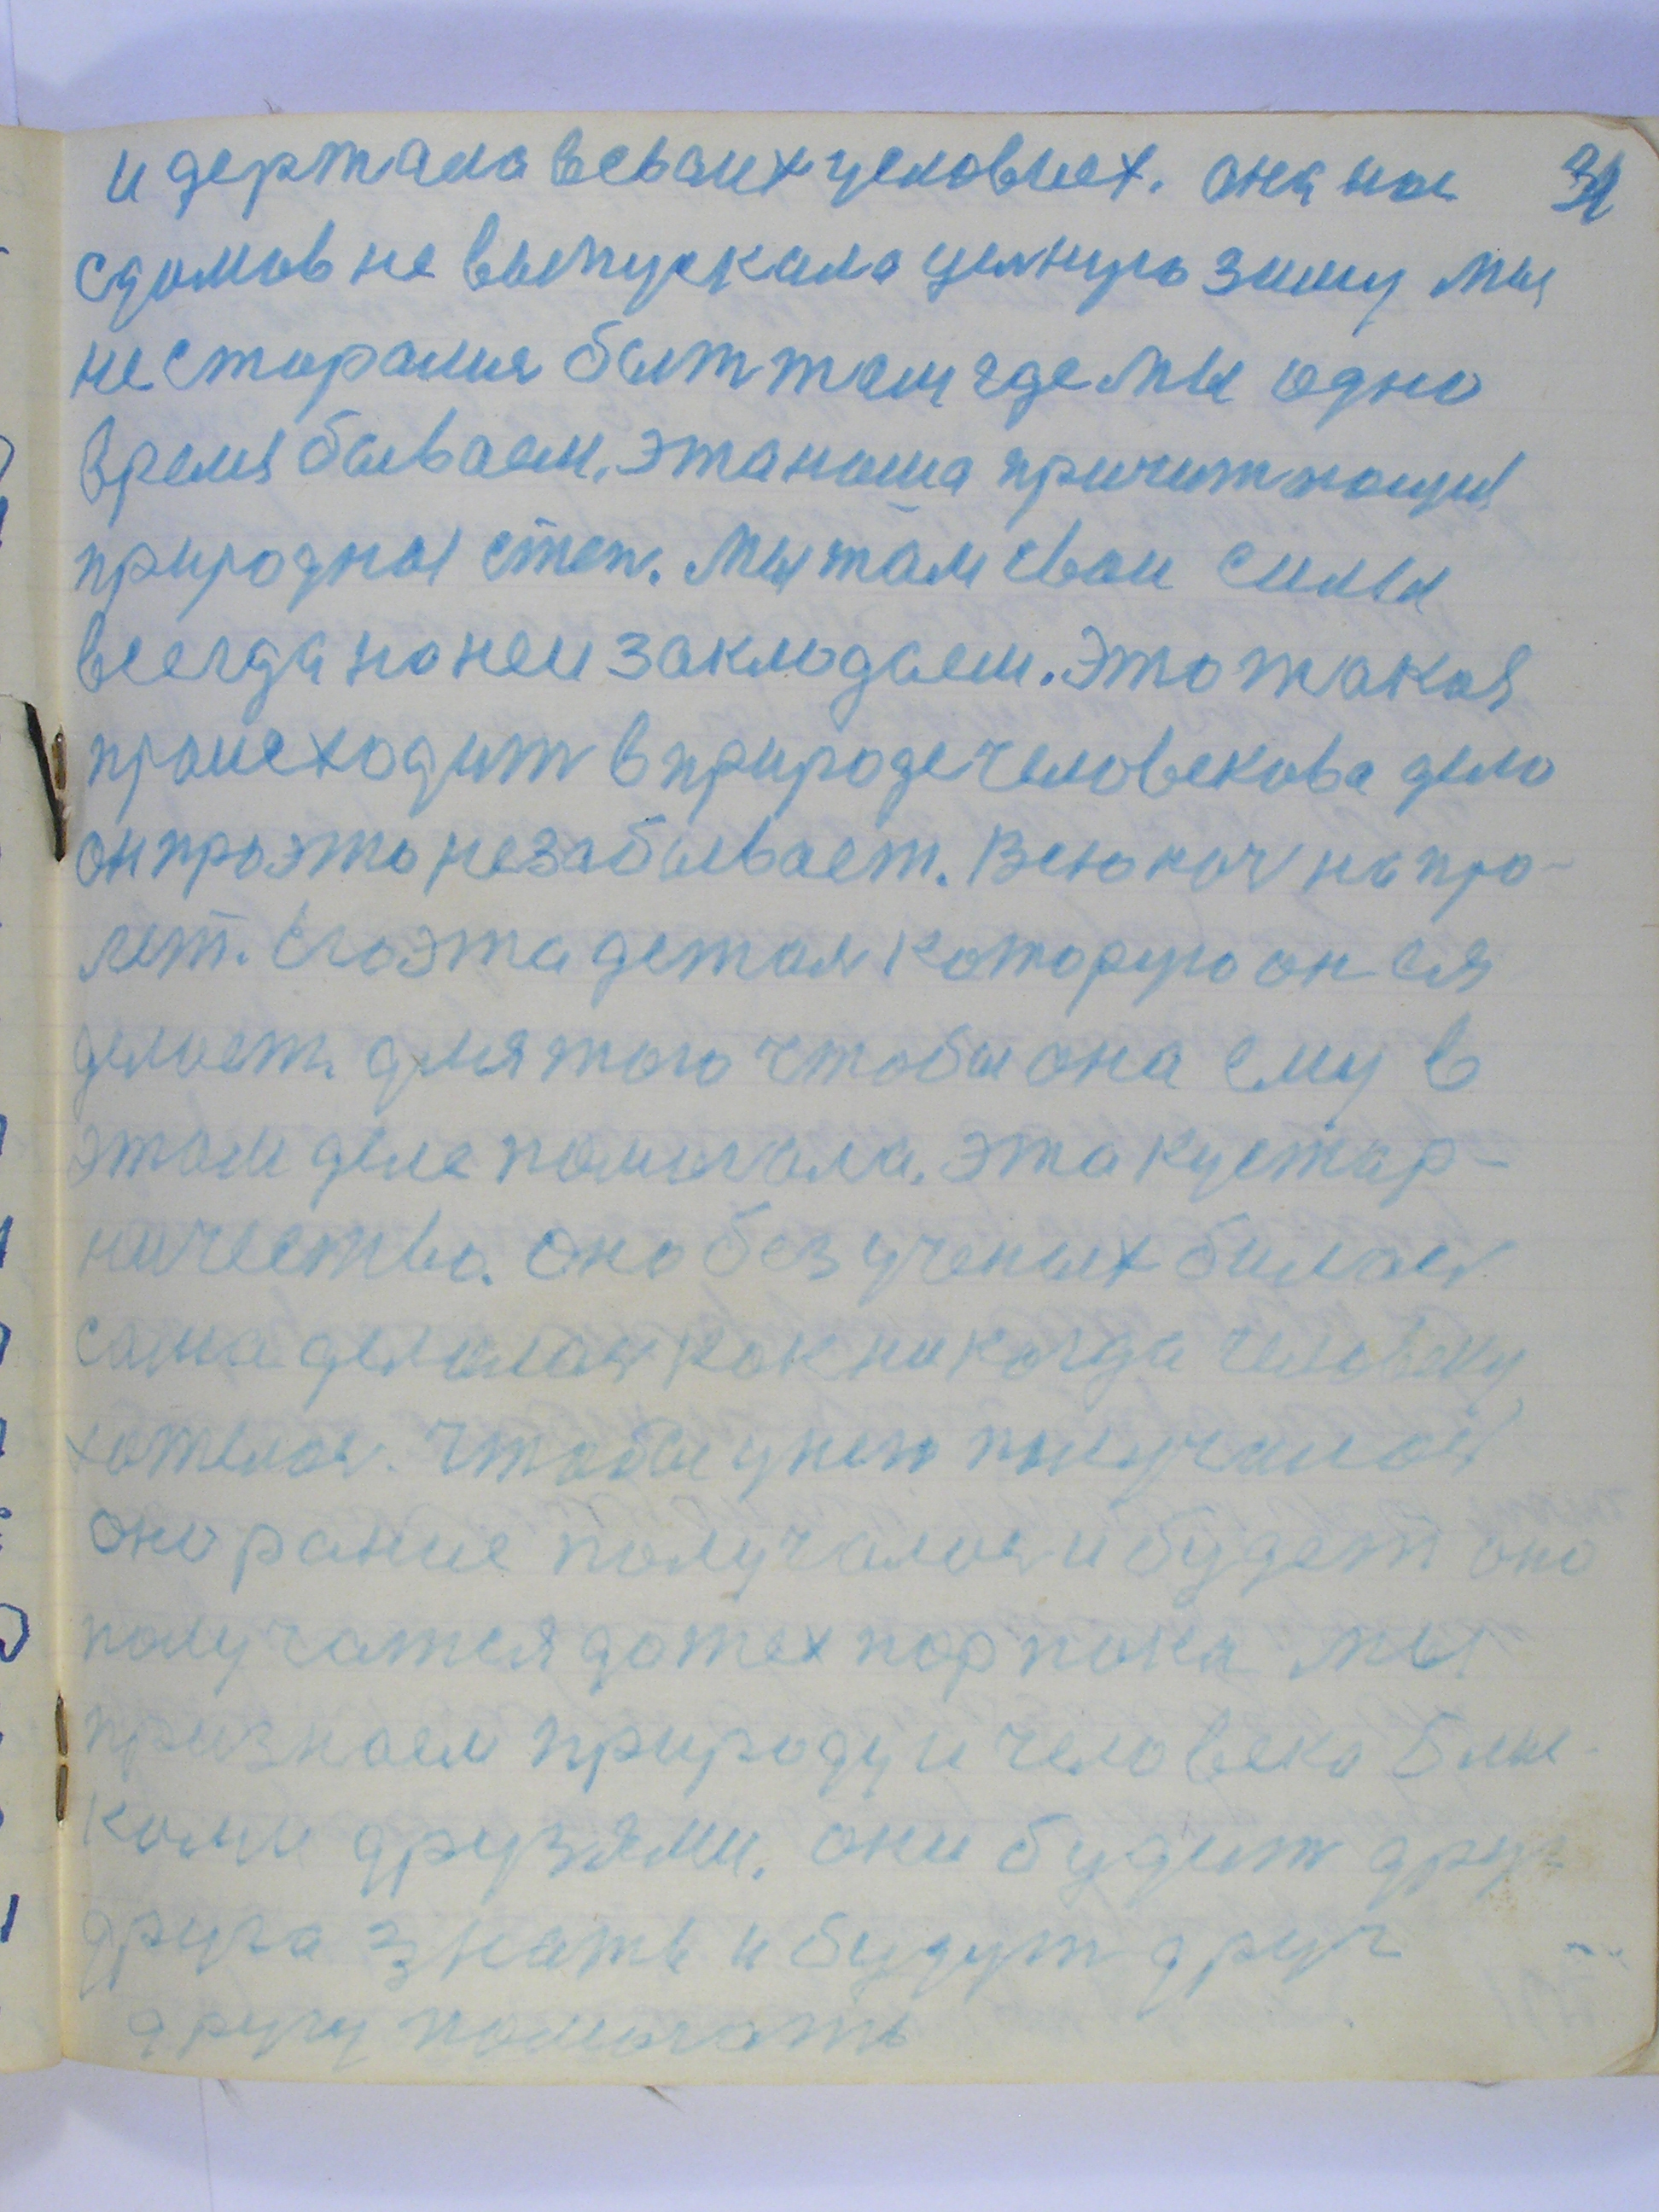 и держала всвоих условиех. она нас 31
сдомов не выпускала целную зиму мы
не старалися быт там где мы одно
время бываем. Эта наша причитающия
природныи степ. Мы там свои силы
всегда на неи закладаем. Это такоя
происходит в природе человекова дело
он про это не забывает. Всю ноч на про-
лет. Его эта деталя которую он ся
делает. для того чтобы она ему в
этом деле помогала. эта кустар-
ничества. Оно без ученых былося
сама делалася как никогда человеку
хотелося. Чтобы у нею получалося
оно ранше получалося и будет оно
получатся до тех пор пока мы
признаем природу и человека блис-
коми друзями. они будит друг
друга знать и будут друг
другу помогать